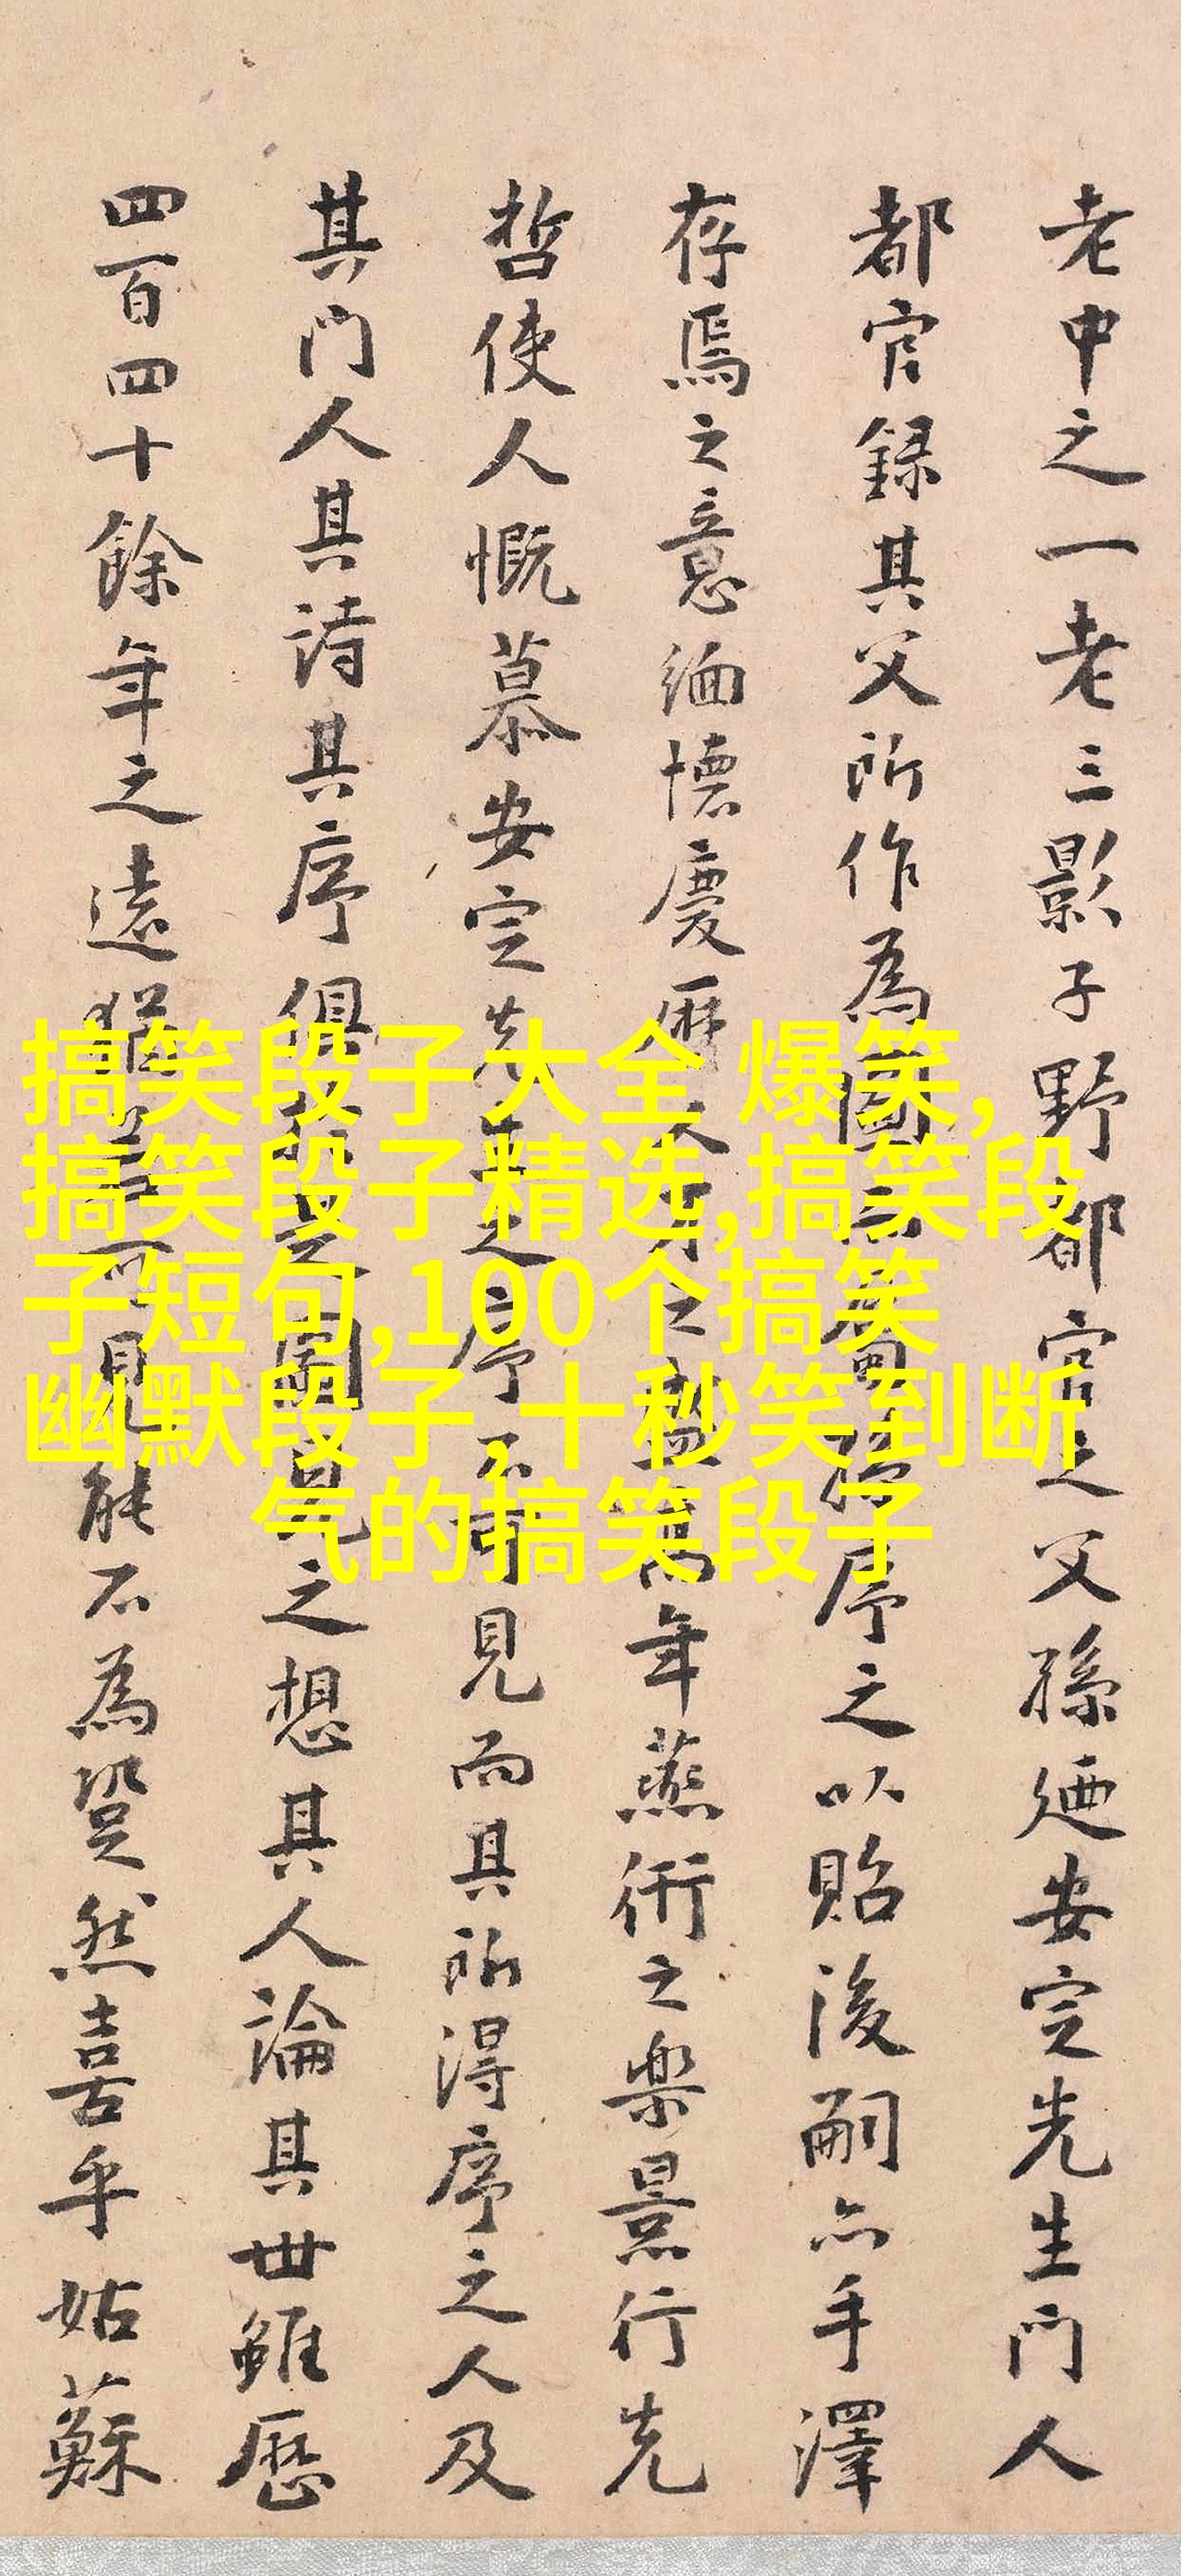 老中之一老三影子野都官之父孫廼安定先生門人
都官録其父所作為圖序之以貽後嗣亦手澤
存焉之意緬懷慶曆仁盛高年燕衎之樂景行先
哲使人慨慕安定先之序不可見而其所得序之人及
其門人其詩其序俱圖之想其人論其世雖歷
四百四十餘年之遠猶可見能不為跫然喜乎姑蘇
搞笑段子大全,爆笑,
搞笑段子精选,搞笑段
子短句,100个搞笑
幽默段子,十秒笑到断
气的搞笑段子